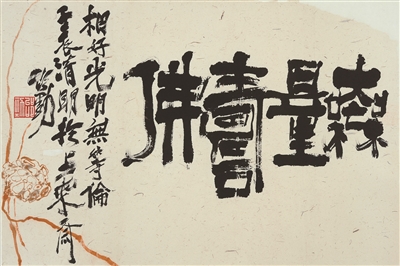 無量壽佛
相好光明無等倫
壬辰清明於上齋